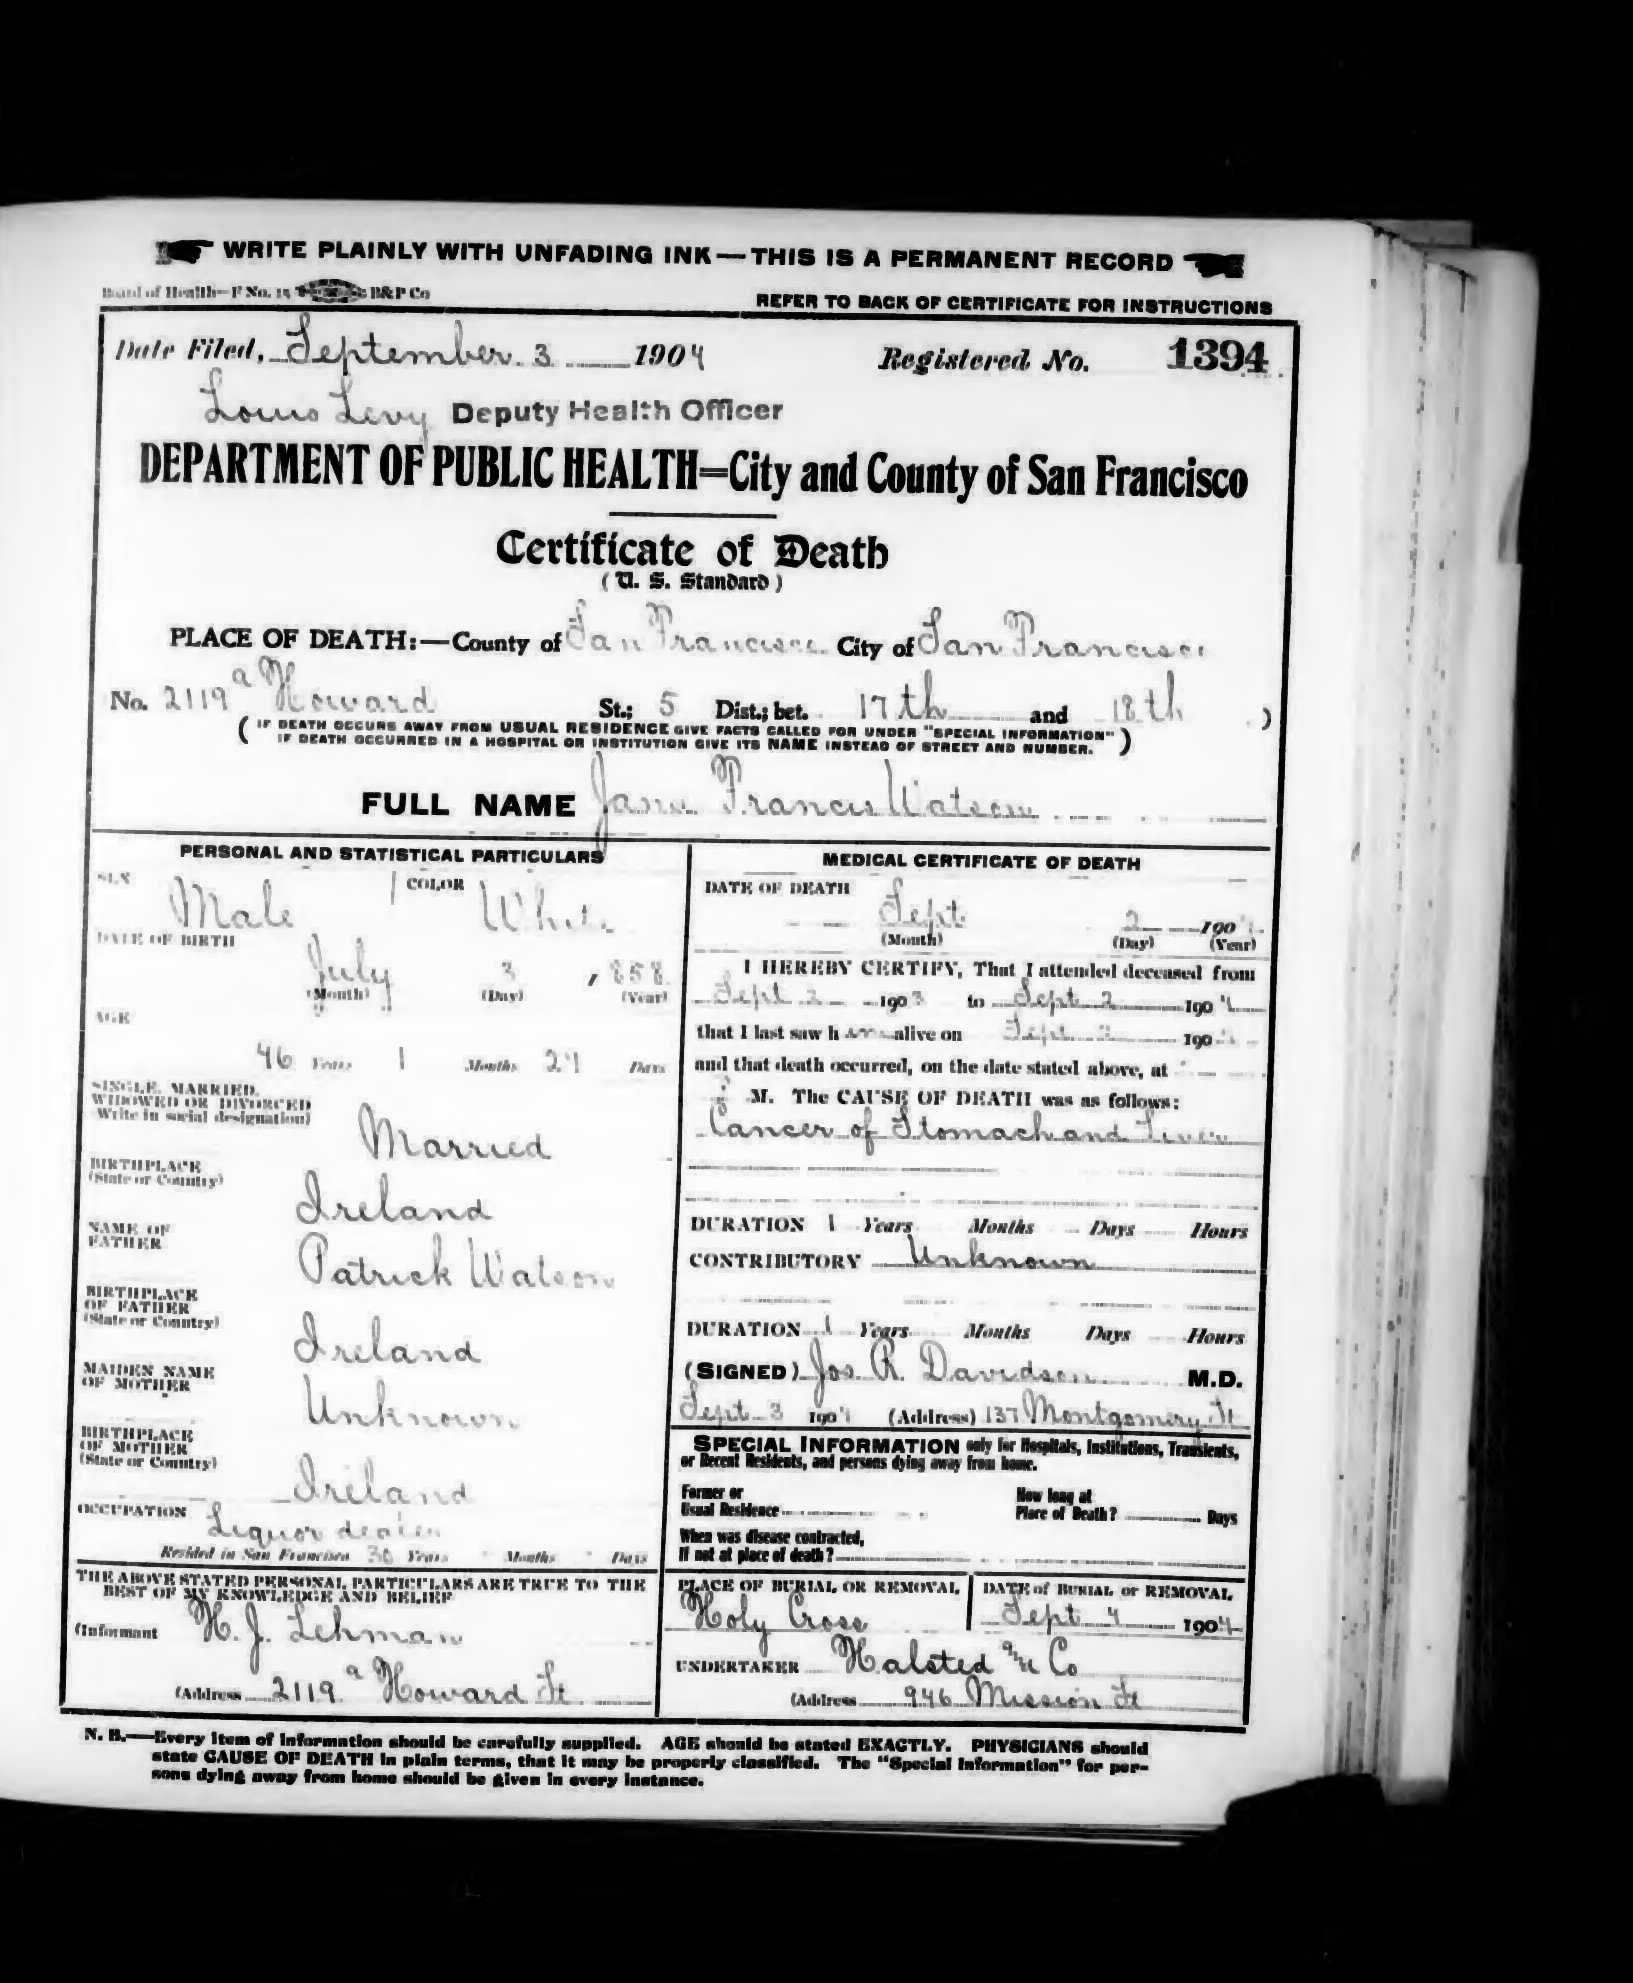 WRITE PLAINLY WITH UNFADING INK—THIS IS A PERMANENT RECORD
Board of Health—F No. 15 B&P Co
REFER TO BACK OF CERTIFICATE FOR INSTRUCTIONS
Date Filed, September 3 1904 Registered No. 1394
Louis Levy Deputy Health Officer
DEPARTMENT OF PUBLIC HEALTH=City and County of San Francisco
Certificate of Death
(U. S. Standard)
PLACE OF DEATH:—County of San Francisco City of San Francisco
No. 2119 a Howard St.; 5 Dist.; bet. 17th and 18th )
( IF DEATH OCCURS AWAY FROM USUAL RESIDENCE GIVE FACTS CALLED FOR UNDER "SPECIAL INFORMATION" )
IF DEATH OCCURRED IN A HOSPITAL OR INSTITUTION GIVE ITS NAME INSTEAD OF STREET AND NUMBER.
FULL NAME Francis Watson
PERSONAL AND STATISTICAL PARTICULARS
SEX Male COLOR White
DATE OF BIRTH
July 3 , 1858
(Month) (Day) (Year)
AGE
46 Years 1 Months Days
SINGLE, MARRIED,
WIDOWED OR DIVORCED
(Write in social designation)
Married
BIRTHPLACE
(State or Country)
Ireland
NAME OF
FATHER
Patrick Watson
BIRTHPLACE
OF FATHER
(State or Country)
Ireland
MAIDEN NAME
OF MOTHER
Unknown
BIRTHPLACE
OF MOTHER
(State or Country)
Ireland
OCCUPATION
Liquor dealer
Resided in San Francisco 30 Years Months Days
THE ABOVE STATED PERSONAL PARTICULARS ARE TRUE TO THE
BEST OF MY KNOWLEDGE AND BELIEF
(Informant H. J. Lehman
(Address 2119 a Howard St
MEDICAL CERTIFICATE OF DEATH
DATE OF DEATH
Sept 2 190
(Month) (Day) (Year)
I HEREBY CERTIFY, That I attended deceased from
Sept 2 1903 to Sept 2 1904
that I last saw h alive on Sept 2 190
and that death occurred, on the date stated above, at
M. The CAUSE OF DEATH was as follows:
Cancer of Stomach and Liver
DURATION 1 Years Months Days Hours
CONTRIBUTORY Unknown
DURATION 1 Years Months Days Hours
(SIGNED) Jos R. Davidson M.D.
Sept 3 1904 (Address) 137 Montgomery St
SPECIAL INFORMATION only for Hospitals, Institutions, Transients,
or Recent Residents, and persons dying away from home.
Former or
Usual Residence
How long at
Place of Death? Days
When was disease contracted,
If not at place of death?
PLACE OF BURIAL OR REMOVAL
Holy Cross
DATE of BURIAL or REMOVAL
Sept 4 1904
UNDERTAKER Halsted & Co
(Address 946 Mission St
N. B.—Every item of information should be carefully supplied. AGE should be stated EXACTLY. PHYSICIANS should
state CAUSE OF DEATH in plain terms, that it may be properly classified. The "Special Information" for per-
sons dying away from home should be given in every instance.